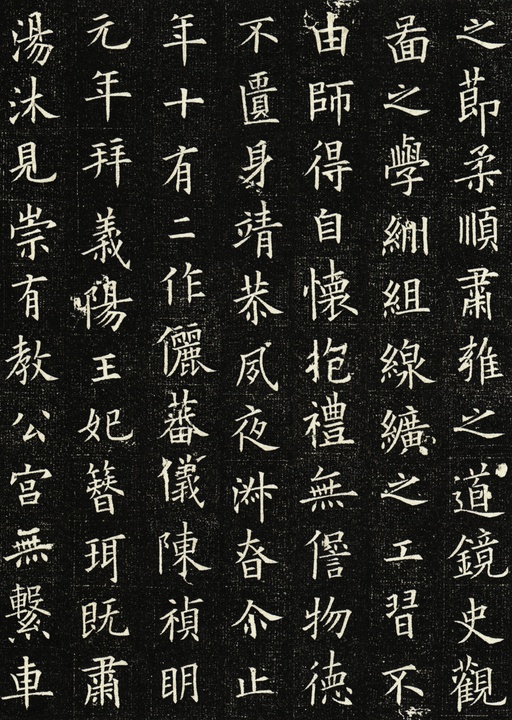 之莭柔順肅雍之道鏡史觀
啚之學紃組線纊之工習不
由師得自懷抱禮無僭物德
不匱身靖恭夙夜淋昚尒止
年十有二作儷蕃儀陳禎明
元年拜義陽王妃簪珥既肅
湯沐見崇有教公宮無繫車